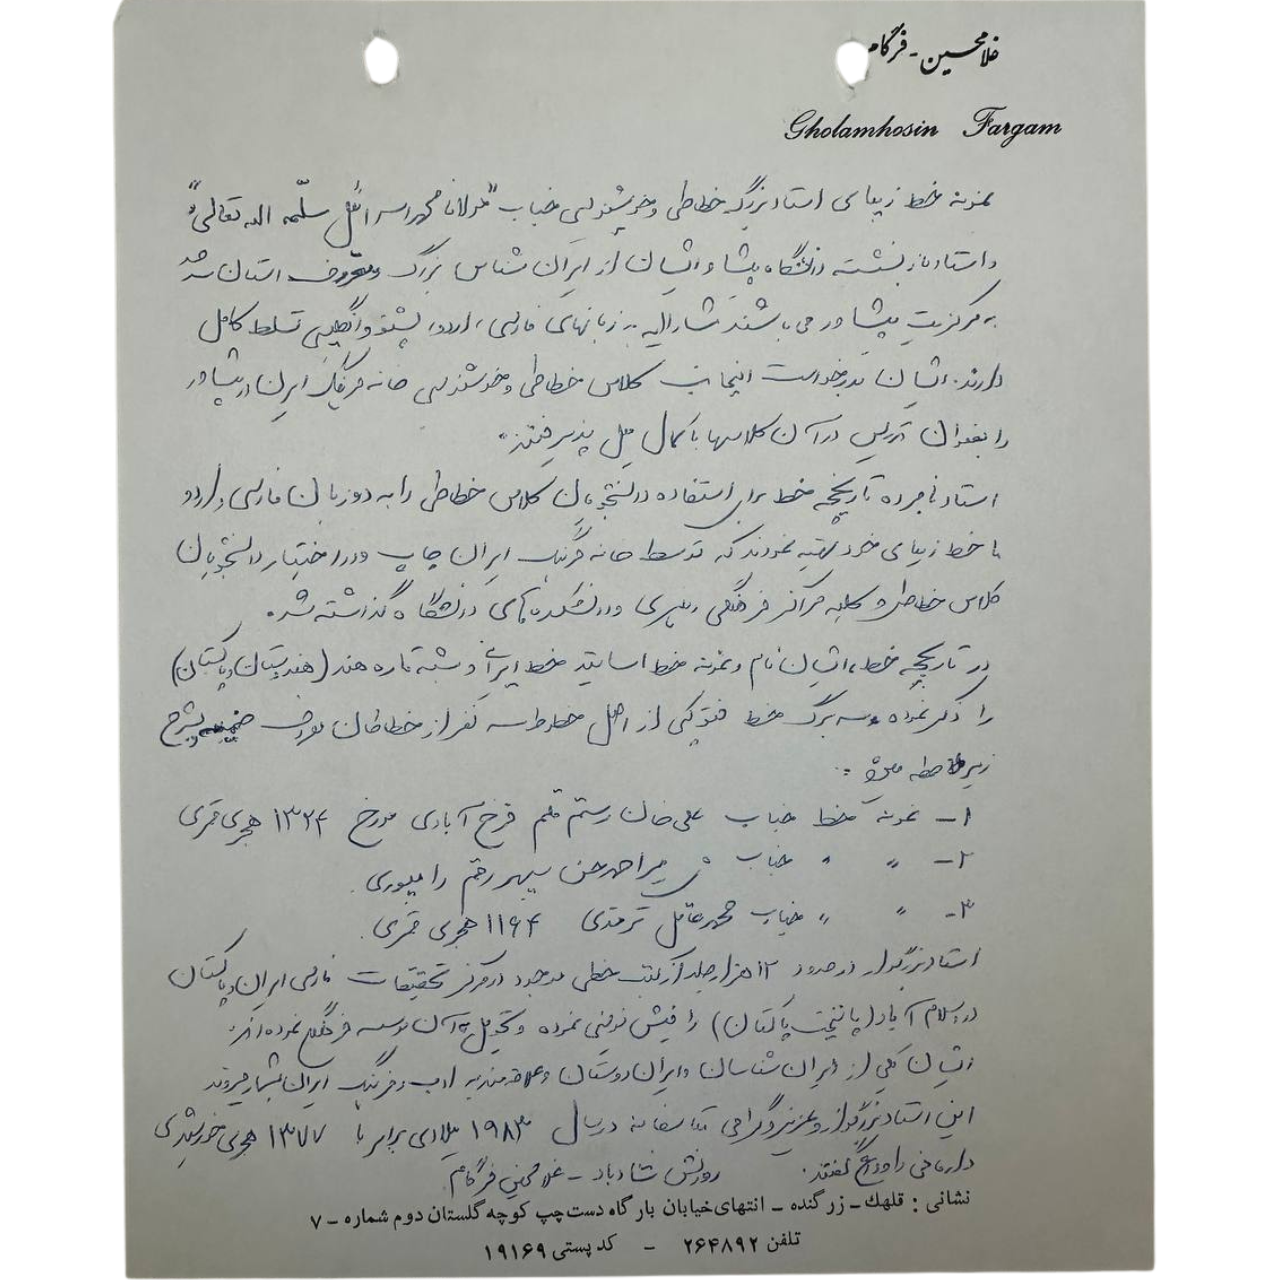 غلامحسین - فرگام
Gholamhosin Fargam
نمونه خط زیبای استاد بزرگ خطاطی و خوشنویسی جناب "مولانا محمد اسرائیل سلّمه الله تعالی"
و استاد بازنشسته دانشگاه پیشاور ایشان از ایران شناس بزرگ و معروف استان سرحد
به مرکزیت پیشاور می باشند مشارالیه به زبانهای فارسی، اردو، پشتو و انگلیسی تسلط کامل
دارند. ایشان بدرخواست اینجانب کلاس خطاطی و خوشنویسی خانه فرهنگ ایران در پیشاور
را بعنوان تدریس در آن کلاسها با کمال میل پذیرفتند.
استاد نامبرده تاریخچه خط برای استفاده دانشجویان کلاس خطاطی را به دو زبان فارسی و اردو
با خط زیبای خود تهیه نمودند که توسط خانه فرهنگ ایران چاپ و در اختیار دانشجویان
کلاس خطاطی و کلیه مراکز فرهنگی و دانشکده های دانشگاه گذاشته شد.
در تاریخچه خط، ایشان نام و نمونه خط اساتید خط ایرانی و شبه قاره هند (هندوستان و پاکستان)
را ذکر نموده و سه برگ خط فتوکپی از اصل خطوط سه نفر از خطاطان معروف ضمیمه بشرح
زیر ملاحظه میشود :
۱- نمونه خط جناب علی خان رستم قلم فرخ آبادی مورخ ۱۳۲۴ هجری قمری
۲- " " جناب میر احمد حسن سپهر رقم رامپوری.
۳- " " جناب محمد عاقل ترمذی ۱۱۶۴ هجری قمری.
استاد بزرگوار در حدود ۱۲ هزار جلد از کتب خطی موجود در مرکز تحقیقات فارسی ایران و پاکستان
در اسلام آباد (پایتخت پاکستان) را فیش نویسی نموده و تحویل به آن موسسه فرهنگی نموده اند.
ایشان یکی از ایران شناسان و ایران دوستان و علاقمند به ادب و فرهنگ ایران بشمار میروند
این استاد بزرگوار و عزیز و گرامی متاسفانه در سال ۱۹۸۳ میلادی برابر با ۱۳۷۷ هجری خورشیدی
دار فانی را وداع گفتند. روانش شاد باد - غلامحسین فرگام
نشانی : قلهك - زرگنده - انتهای خیابان بارگاه دست چپ کوچه گلستان دوم شماره - ۷
تلفن ۲۶۴۸۹۲ - کد پستی ۱۹۱۶۹